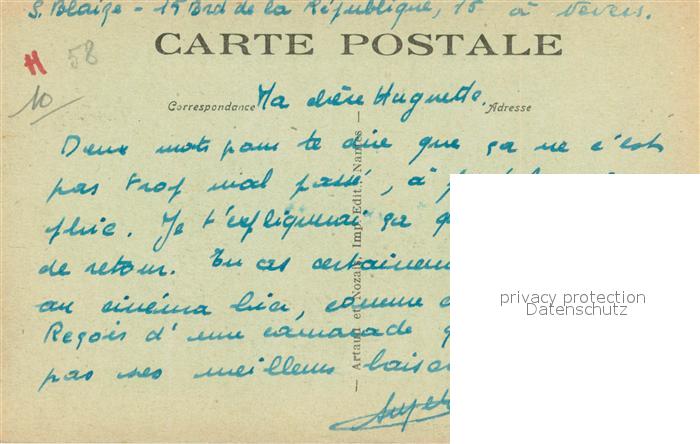 S. Blaize - 15 Brd de la République, 15 à Nevers.
CARTE POSTALE
H 58
10
Correspondance Ma chère Huguette. Adresse
Deux mots pour te dire que ça ne s'est
pas trop mal passé, à
phie. Je t'expliquerai ça
de retour. Tu as certainem
au cinéma hier, comme
Reçois d'une camarade
pas ses meilleurs baise
— Artaud et Nozais, Imp. Edit., Nantes —
privacy protection
Datenschutz